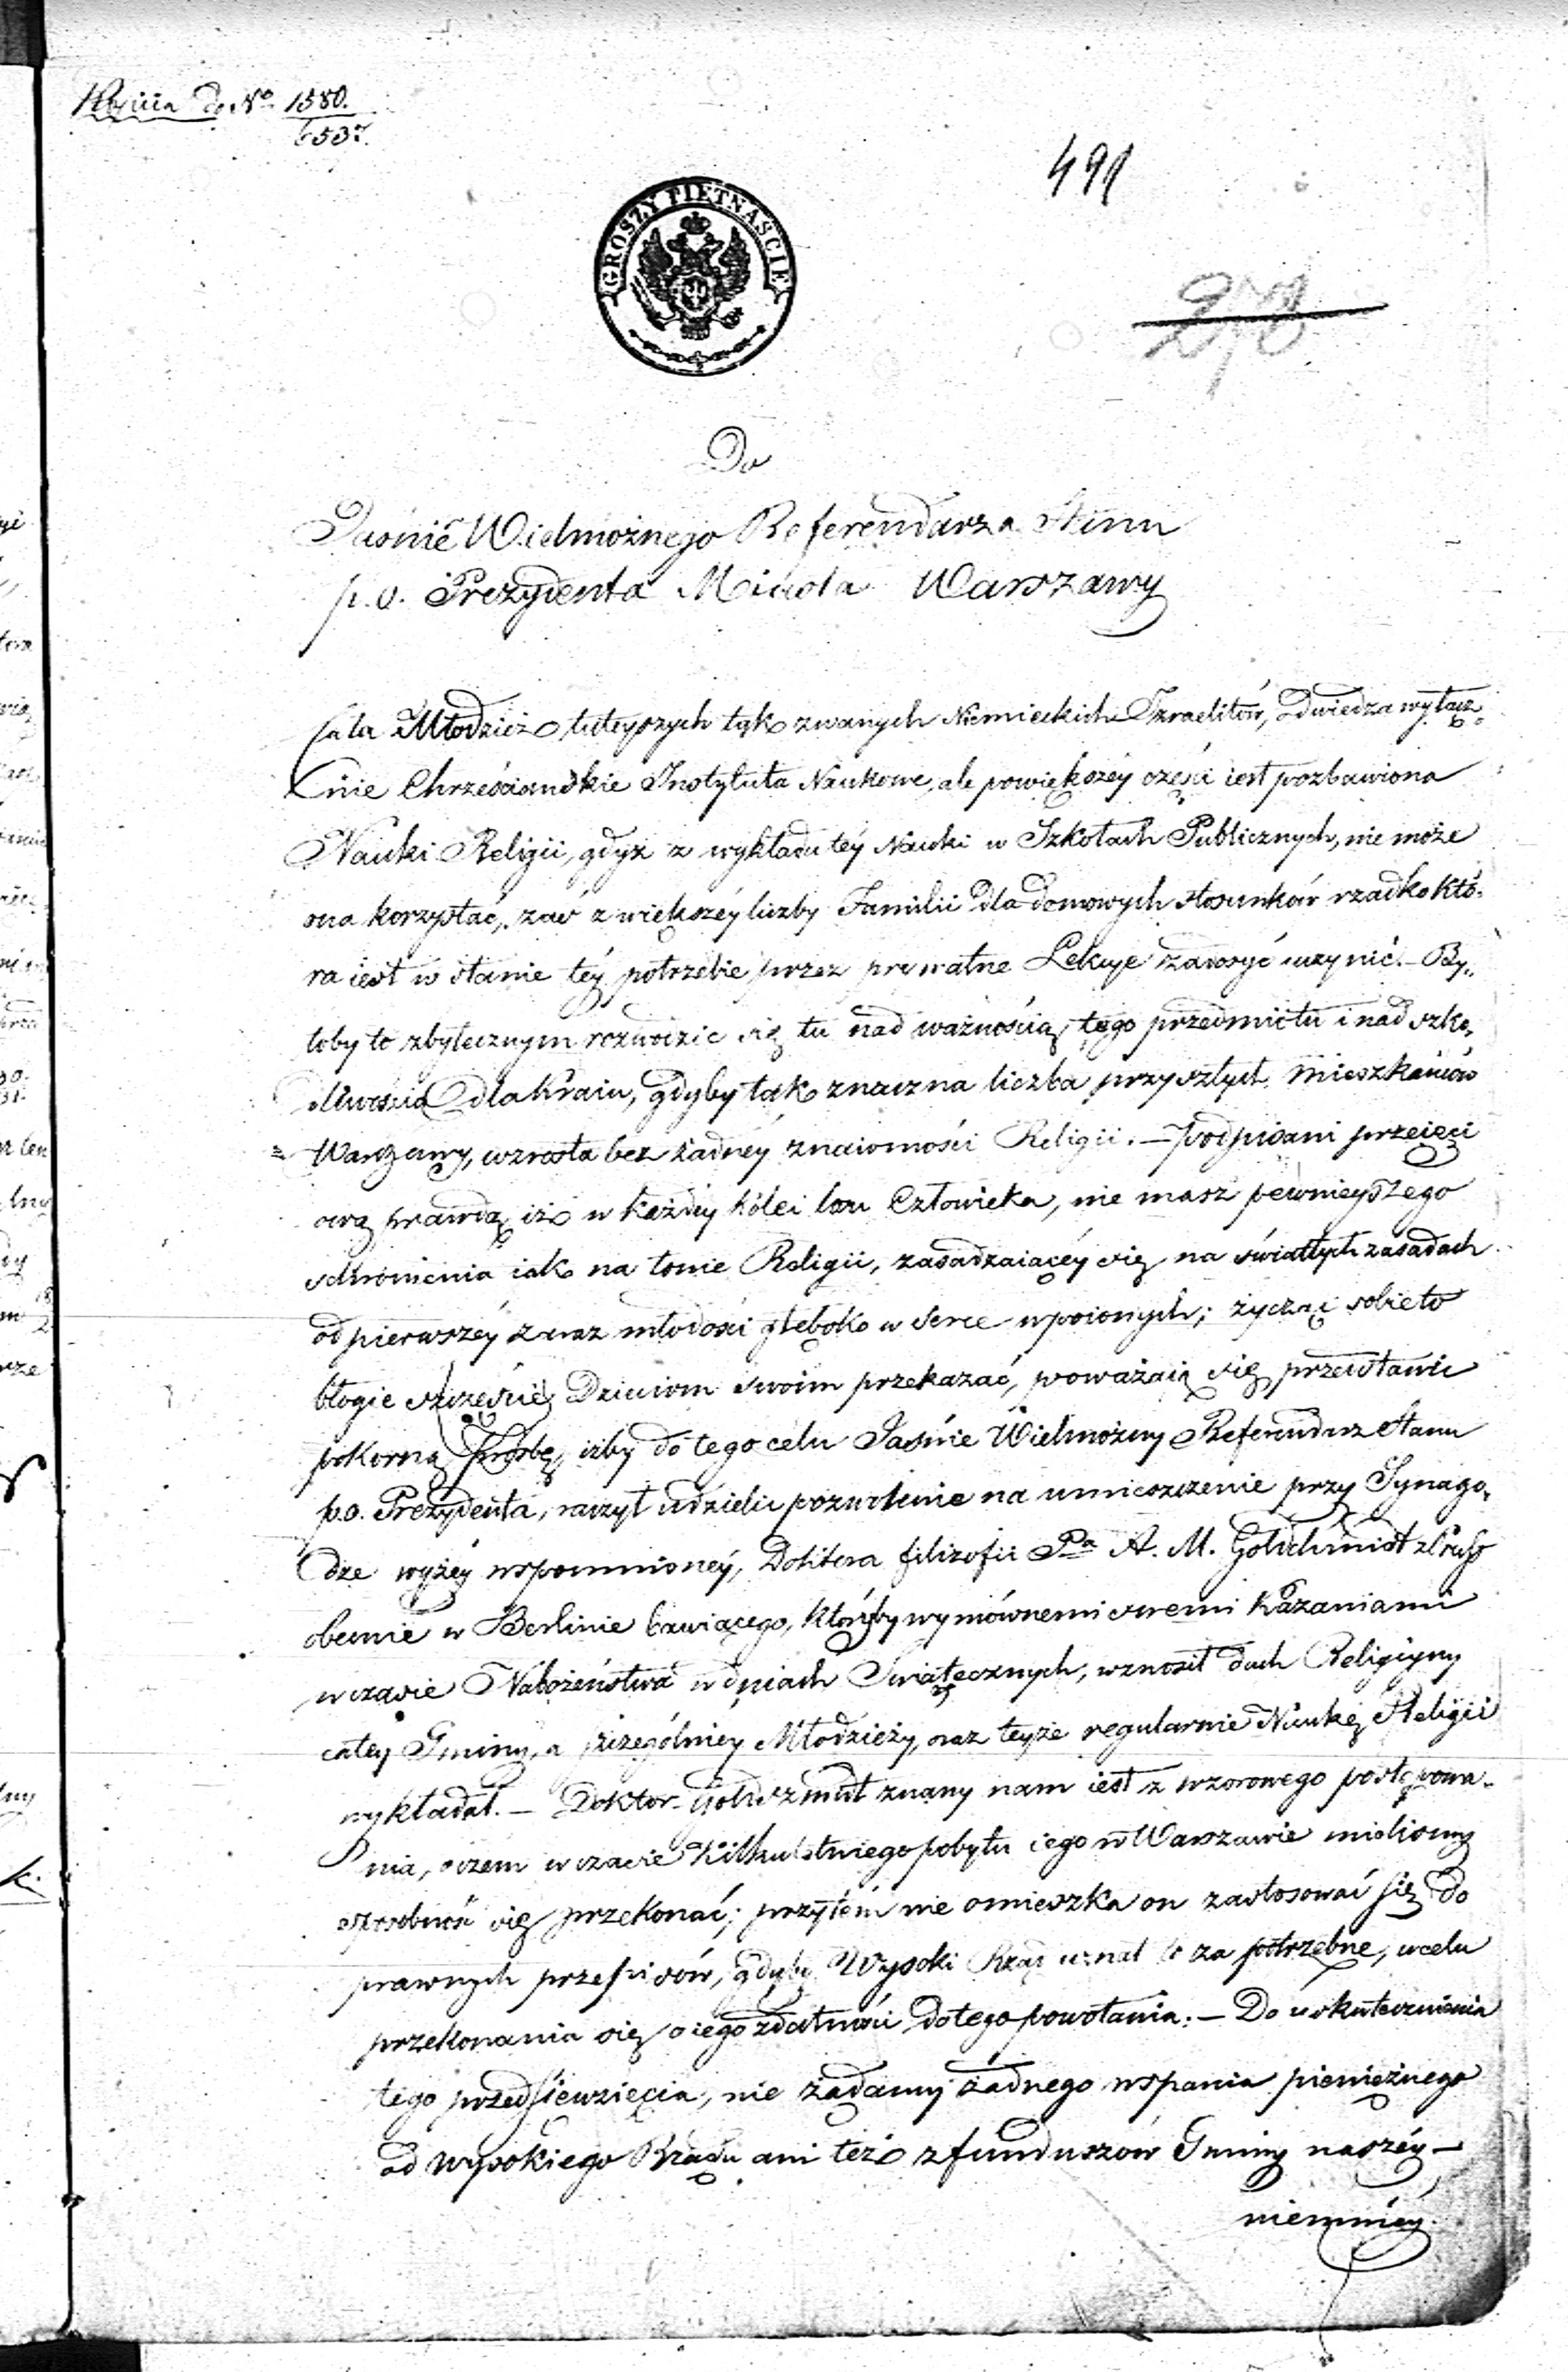 Kopiia do No 1580.
6537.
491
GROSZY PIĘTNAŚCIE
Do
Jaśnie Wielmożnego Referendarza Stanu
p.o. Prezydenta Miasta Warszawy
Cała Młodzież tuteyszych tak zwanych Niemieckich Izraelitów, odwiedza wyłącz-
nie Chrześciandskie Instytuta Naukowe, ale powiększéy części iest pozbawiona
Nauki Religii, gdyż z wykładu téy Nauki w Szkołach Publicznych, nie może
ona korzystać, zaś z większéy liczby Familii dla domowych stosunków rzadko któ-
ra iest w stanie téy potrzebie przez prywatne Lekcye zadosyć uczynić. — By-
łoby to zbytecznym rozwodzić się tu nad ważnością tego przedmiotu i nad szko-
dliwością dla Kraiu, gdyby tak znaczna liczba przyszłych mieszkańców
Warszawy, wzrosła bez żadnéy znaiomości Religii. — Podpisani przeięci
ową prawdą iż w każdey kolei losu Człowieka, nie masz pewnieyszego
schronienia iak na łonie Religii, zasadzaiącéy się na światłych zasadach
od pierwszéy zaraz młodości głęboko w serce wpoionych; życząc sobie to
błogie szczęście Dzieciom swoim przekazać, poważaią się przedstawić
pokorną Prośbę, iżby do tego celu Jaśnie Wielmożny Referendarz Stanu
p.o. Prezydenta, raczył udzielić pozwolenie na umieszczenie przy Synago-
dze wyżéy wspomnionéy, Doktora filizofii Pa A. M. Goldschmidt z Pruss
obecnie w Berlinie bawiącego, któryby wymównemi swemi Kazaniami
w czasie Nabożeństwa w dniach Świątecznych, wznosił duch Religiyny
całey Gminy, a szczególniéy Młodzieży, oraz teyże regularnie Naukę Religii
wykładał. — Doktor Goldszmidt znany nam iest z wzorowego postępowa-
nia, o czem w czasie kilkuletniego pobytu iego w Warszawie mieliśmy
sposobność się przekonać; przytém nie omieszka on zastosować się do
prawnych przepisów, gdyby Wysoki Rząd uznał to za potrzebne, w celu
przekonania się o iego zdatności do tego powołania. — Do uskutecznienia
tego przedsięwzięcia, nie żądamy żadnego wspania pieniężnego
od Wysokiego Rządu ani też z funduszów Gminy naszéy —
niemniéy